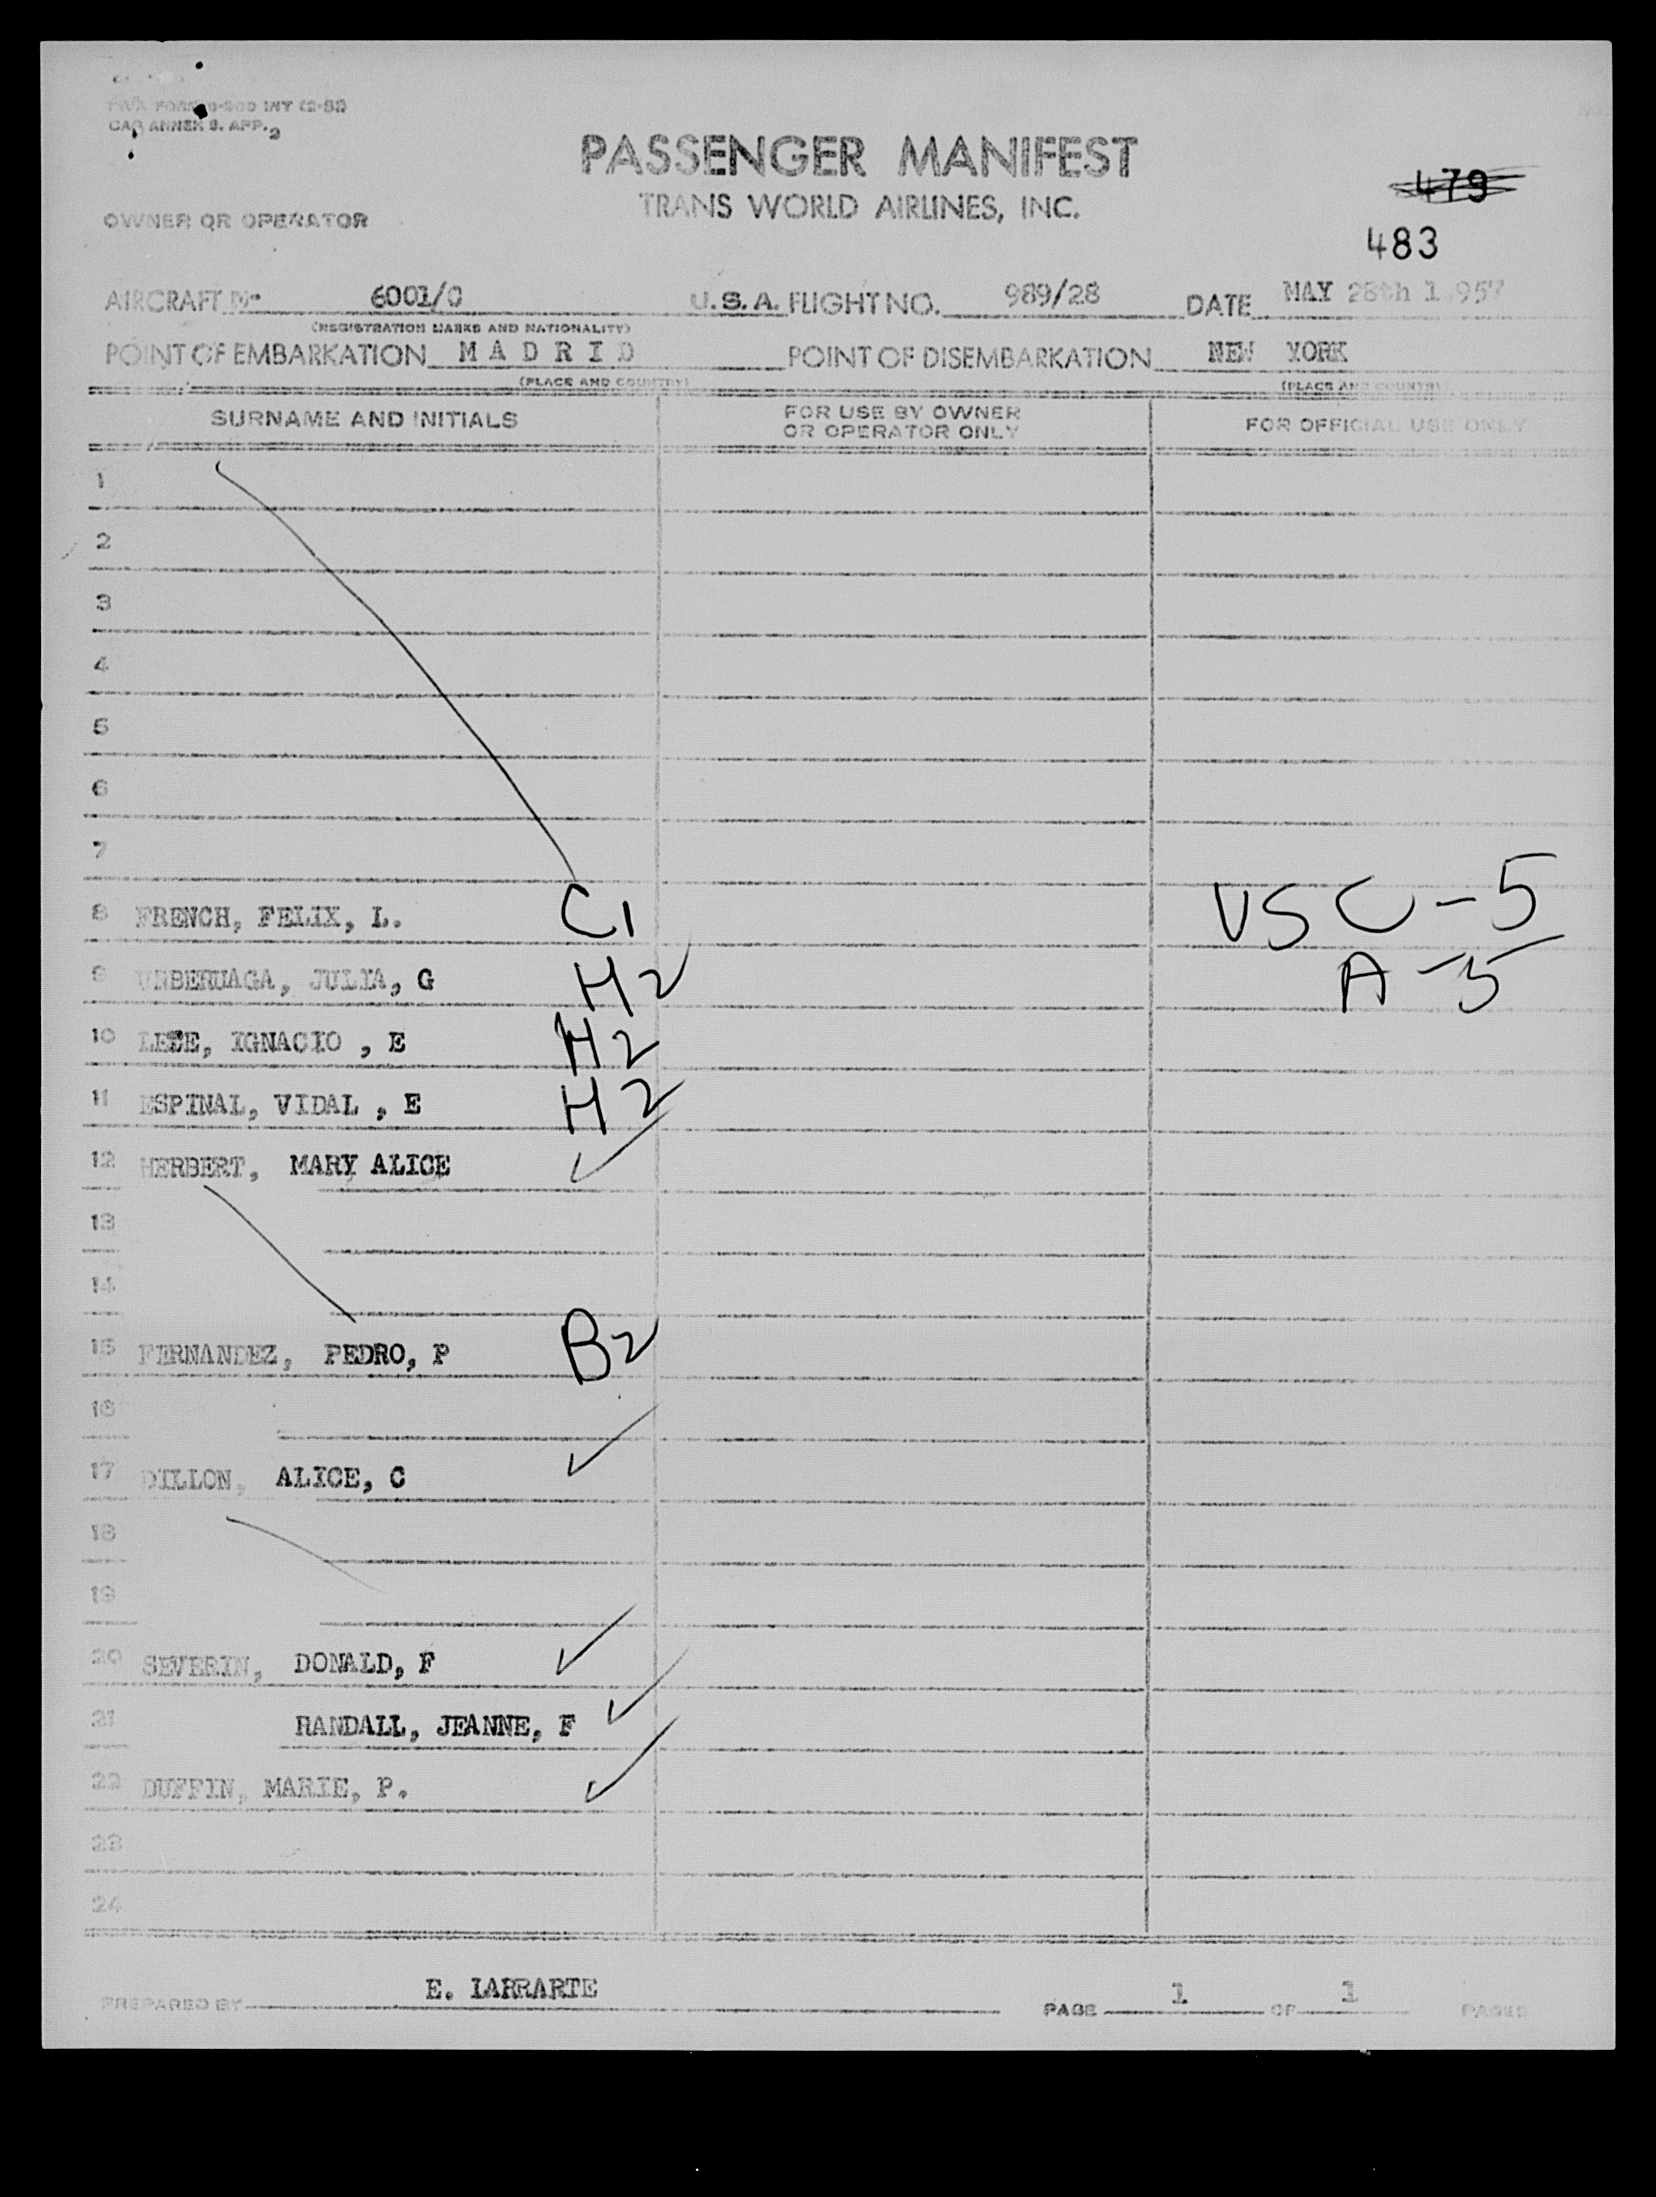 CAB ANNEX 9. APP. 2
PASSENGER MANIFEST
TRANS WORLD AIRLINES, INC.
479
483
OWNER OR OPERATOR
AIRCRAFT No 6001/C U.S.A. FLIGHT NO. 989/28 DATE MAY 28th 1.957
(REGISTRATION MARKS AND NATIONALITY)
POINT OF EMBARKATION M A D R I D POINT OF DISEMBARKATION NEW YORK
(PLACE AND COUNTRY) (PLACE AND COUNTRY)
SURNAME AND INITIALS FOR USE BY OWNER OR OPERATOR ONLY FOR OFFICIAL USE ONLY
1
2
3
4
5
6
7
8 FRENCH, FELIX, L. C1 USC-5
9 URBERUAGA, JULIA, G H2 A-5
10 IGNACIO , E H2
11 ESPINAL, VIDAL , E H2
12 HERBERT, MARY ALICE
13
14
15 FERNANDEZ, PEDRO, P B2
16
17 DILLON, ALICE, C
18
19
20 SEVERIN, DONALD, F
21 RANDALL, JEANNE, F
22 DUFFIN, MARIE, P.
23
24
PREPARED BY E. LARRARTE PAGE 1 OF 1 PAGES